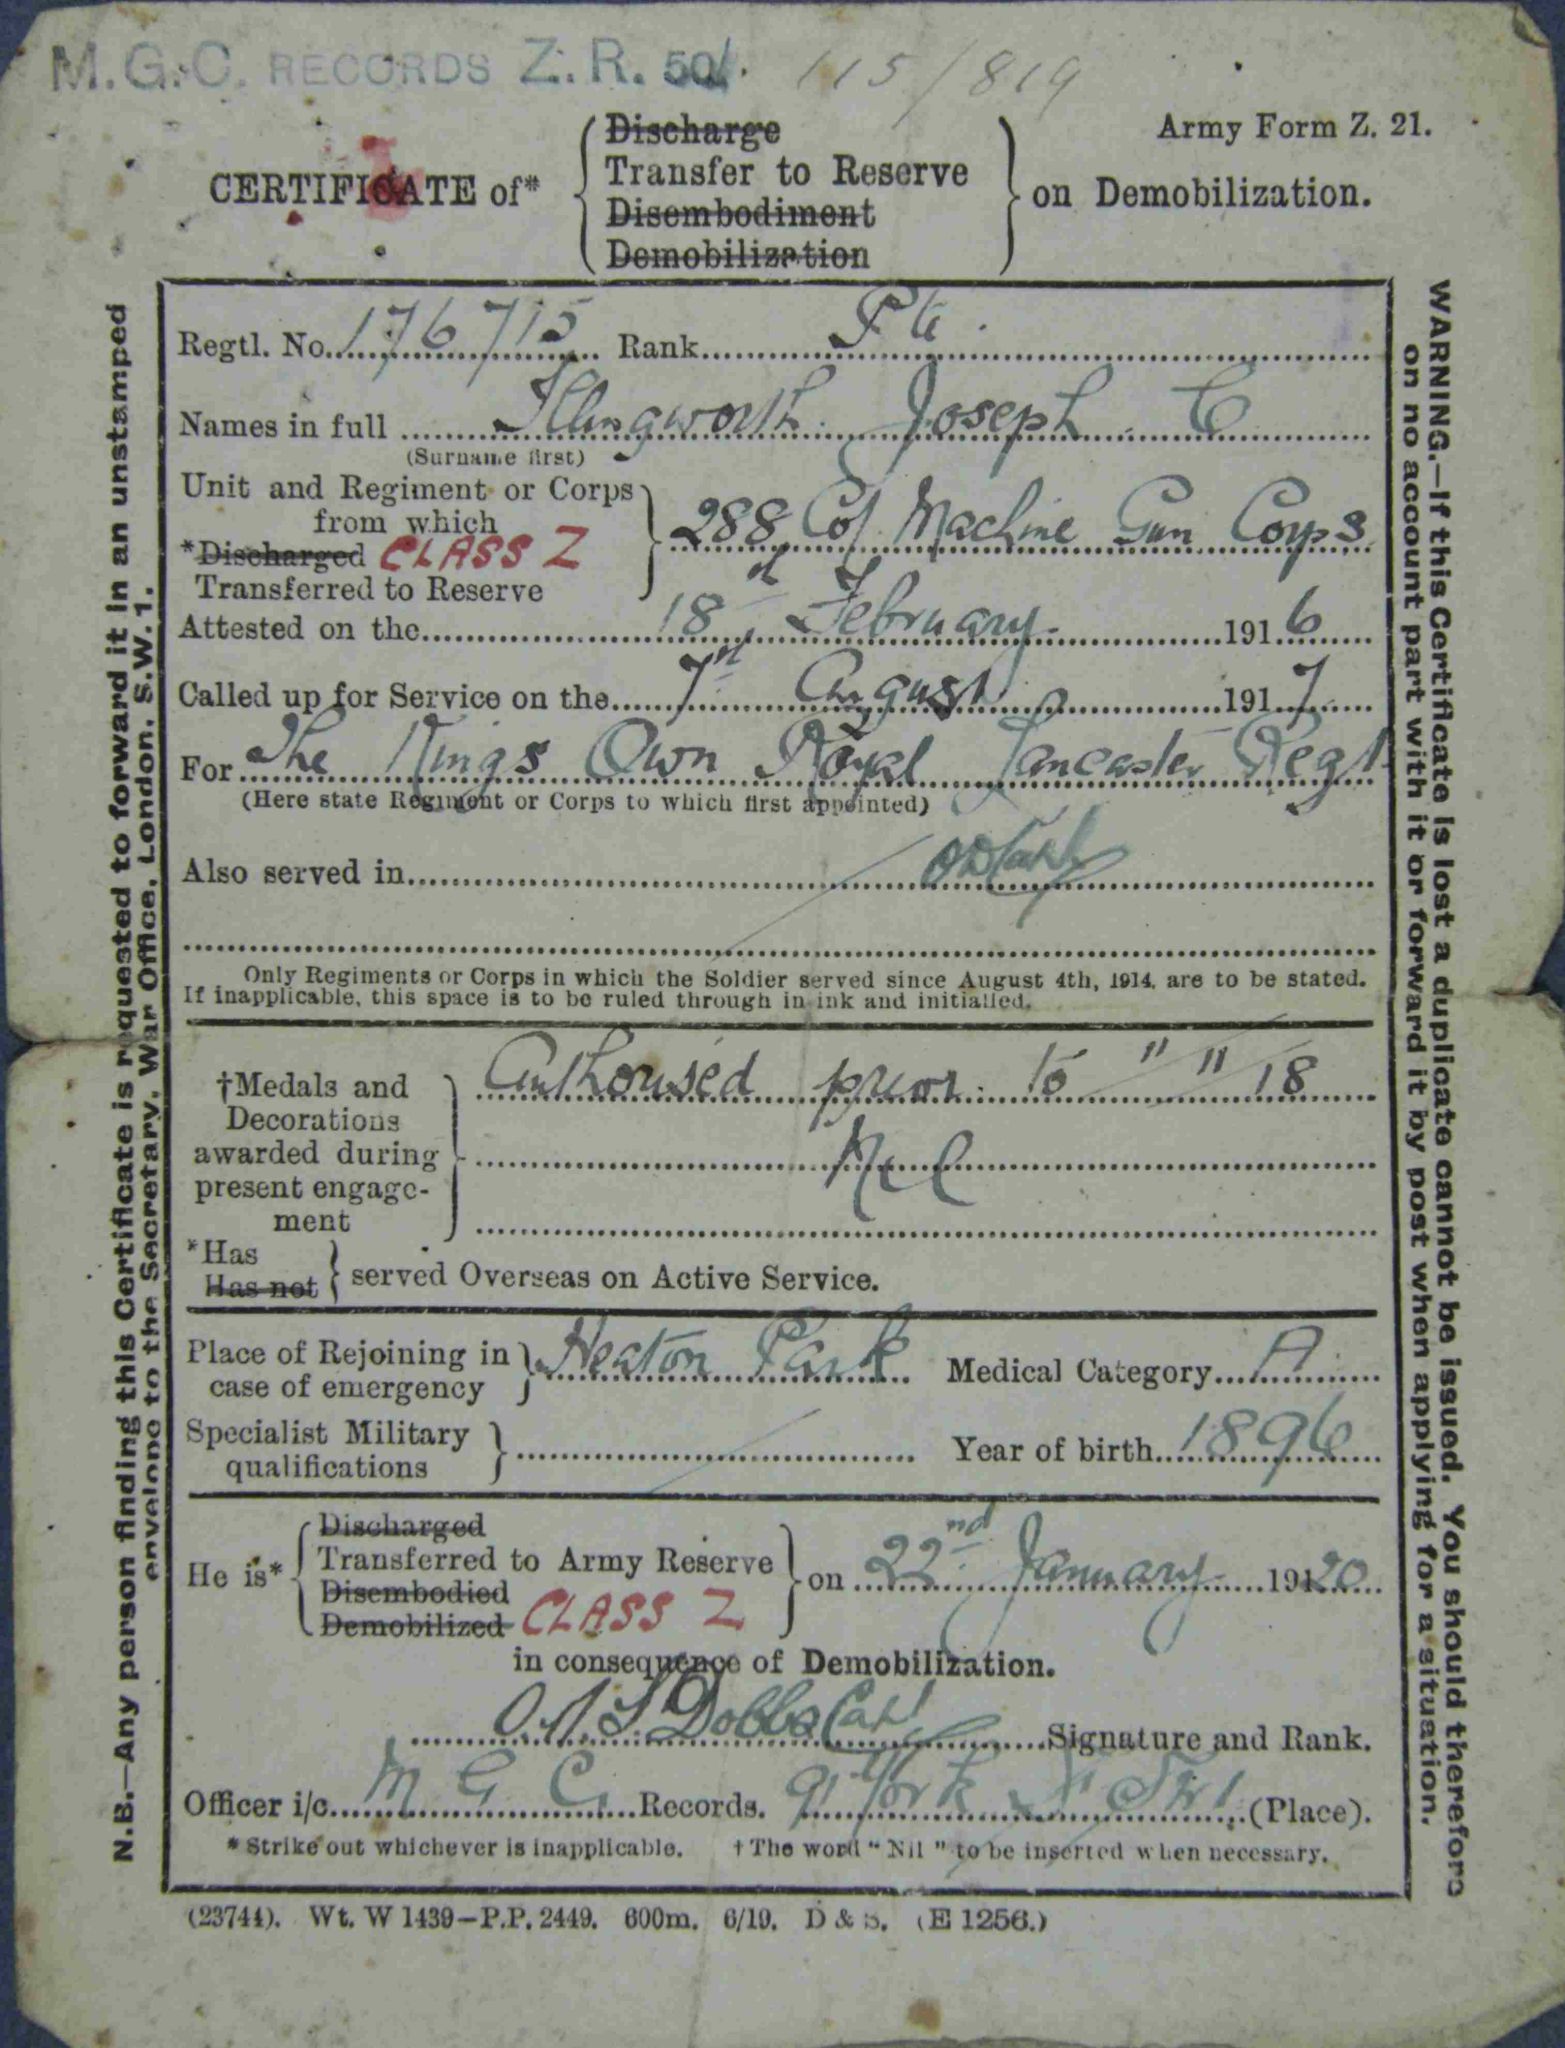 M.G.C. RECORDS Z.R. 50/. 115/819
Army Form Z. 21.
CERTIFICATE of*
Discharge
Transfer to Reserve
Disembodiment
Demobilization
on Demobilization.
Regtl. No. 176715 Rank Pte.
Names in full Illingworth Joseph C
(Surname first)
Unit and Regiment or Corps
from which
*Discharged CLASS Z
Transferred to Reserve
288 Coy Machine Gun Corps
Attested on the 18th February 1916
Called up for Service on the 7th August 1917
For The Kings Own Royal Lancaster Regt
(Here state Regiment or Corps to which first appointed)
Also served in
Only Regiments or Corps in which the Soldier served since August 4th, 1914, are to be stated.
If inapplicable, this space is to be ruled through in ink and initialled.
†Medals and
Decorations
awarded during
present engage-
ment
Authorised prior to 11/11/18
Nil
*Has
Has not
served Overseas on Active Service.
Place of Rejoining in
case of emergency
Heaton Park Medical Category A
Specialist Military
qualifications
Year of birth 1896
He is*
Discharged
Transferred to Army Reserve
Disembodied
Demobilized CLASS Z
on 22nd January 1920
in consequence of Demobilization.
Dobbs Capt Signature and Rank.
Officer i/c M G C. Records. 91 York St SW1 (Place).
* Strike out whichever is inapplicable. † The word "Nil" to be inserted when necessary.
(23744). Wt. W 1439—P.P. 2449. 600m. 6/19. D & S. (E 1256.)
N.B.—Any person finding this Certificate is requested to forward it in an unstamped
envelope to the Secretary, War Office, London. S.W.1.
WARNING.—If this Certificate is lost a duplicate cannot be issued. You should therefore
on no account part with it or forward it by post when applying for a situation.